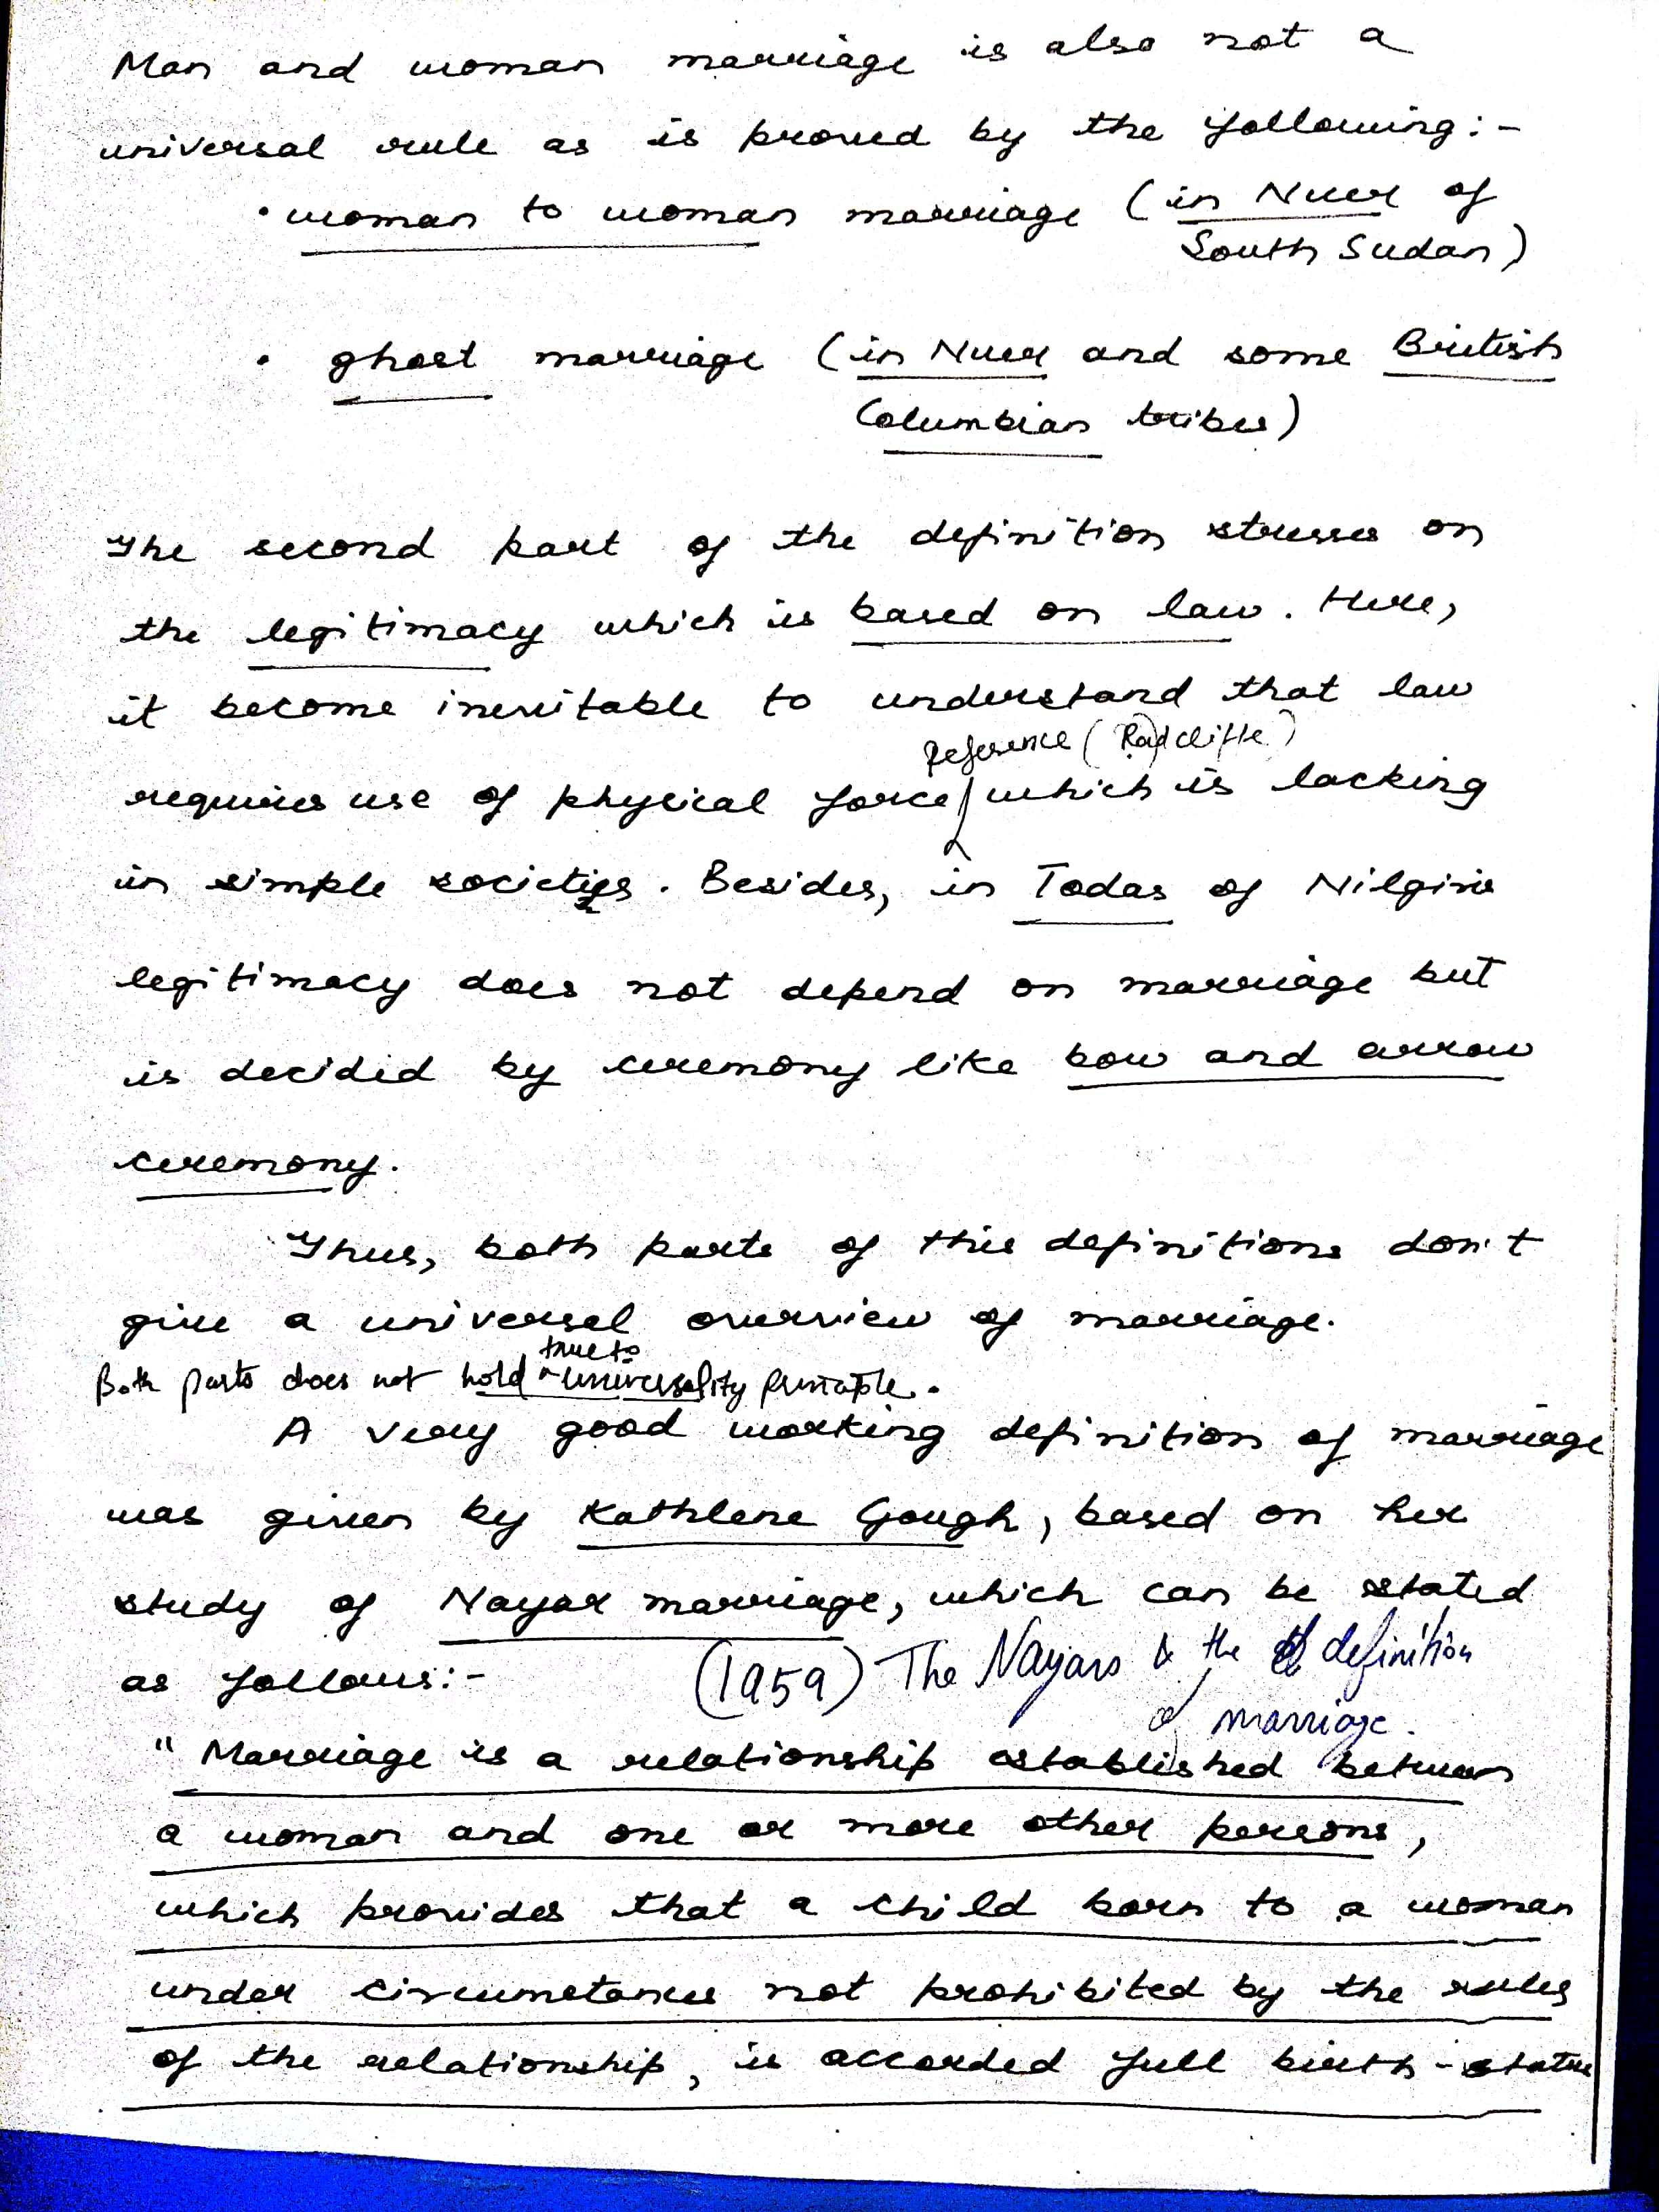 Man and woman marriage is also not a
universal rule as is proved by the following:-
• woman to woman marriage (in Nuer of
South Sudan)
• ghost marriage (in Nuer and some British
Columbian tribes)
The second part of the definition stresses on
the legitimacy which is based on law. Here,
it become inevitable to understand that law
Reference (Radcliffe)
requires use of physical force, which is lacking
in simple societies. Besides, in Todas of Nilgiris
legitimacy does not depend on marriage but
is decided by ceremony like bow and arrow
ceremony.
Thus, both parts of this definitions don't
give a universal overview of marriage.
true to
Both parts does not hold universality principle.
A very good working definition of marriage
was given by Kathlene Gough, based on her
study of Nayar marriage, which can be stated
as follows:- (1959) The Nayars & the definition
of marriage.
"Marriage is a relationship established between
a woman and one or more other persons,
which provides that a child born to a woman
under circumstances not prohibited by the rules
of the relationship, is accorded full birth-status